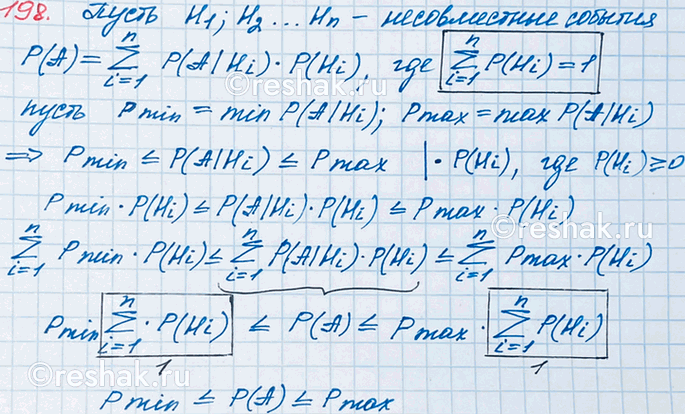 198. Пусть H₁; H₂ ... Hₙ - несовместные события
P(A) = ∑ⁿᵢ₌₁ P(A|Hᵢ) · P(Hᵢ), где ∑ⁿᵢ₌₁ P(Hᵢ) = 1
пусть Pmin = min P(A|Hᵢ); Pmax = max P(A|Hᵢ)
⇒ Pmin ≤ P(A|Hᵢ) ≤ Pmax | · P(Hᵢ), где P(Hᵢ) ≥ 0
Pmin · P(Hᵢ) ≤ P(A|Hᵢ) · P(Hᵢ) ≤ Pmax · P(Hᵢ)
∑ⁿᵢ₌₁ Pmin · P(Hᵢ) ≤ ∑ⁿᵢ₌₁ P(A|Hᵢ) · P(Hᵢ) ≤ ∑ⁿᵢ₌₁ Pmax · P(Hᵢ)
Pmin ∑ⁿᵢ₌₁ · P(Hᵢ) ≤ P(A) ≤ Pmax · ∑ⁿᵢ₌₁ P(Hᵢ)
1 1
Pmin ≤ P(A) ≤ Pmax
©reshak.ru
©reshak.ru
©reshak.ru
©reshak.ru